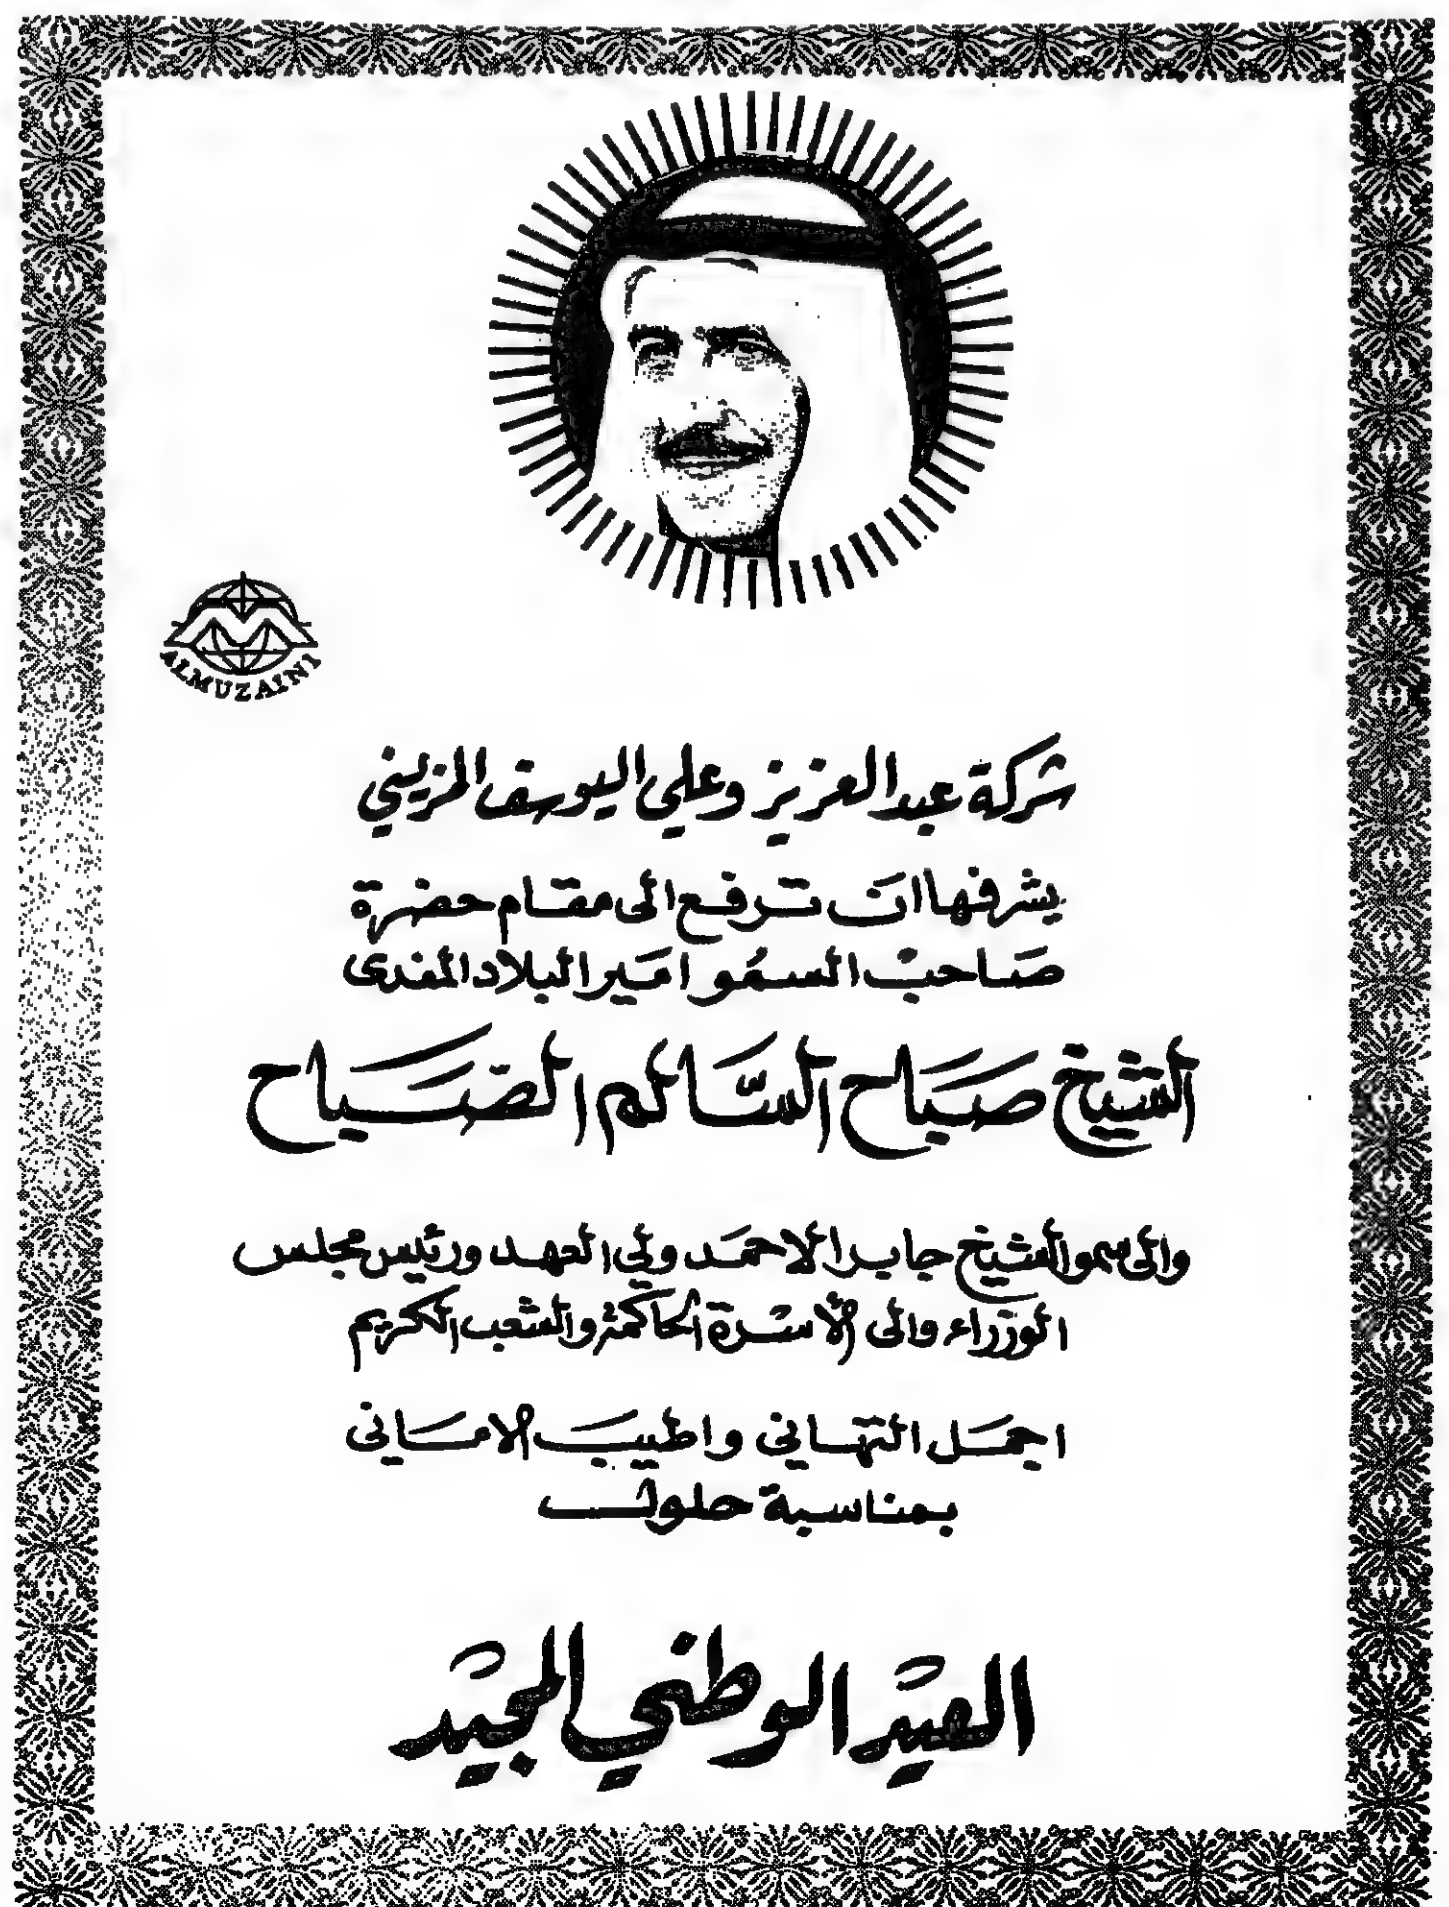 ALMUZAINI
شركة عبدالعزيز وعلي اليوسف المزيني
يشرفها ان ترفع الى مقام حضرة
صاحب السمو امير البلاد المفدى
الشيخ صباح السالم الصباح
والى سمو الشيخ جابر الاحمد ولي العهد ورئيس مجلس
الوزراء والى الأسرة الحاكمة والشعب الكريم
اجمل التهاني واطيب الاماني
بمناسبة حلول
العيد الوطني المجيد